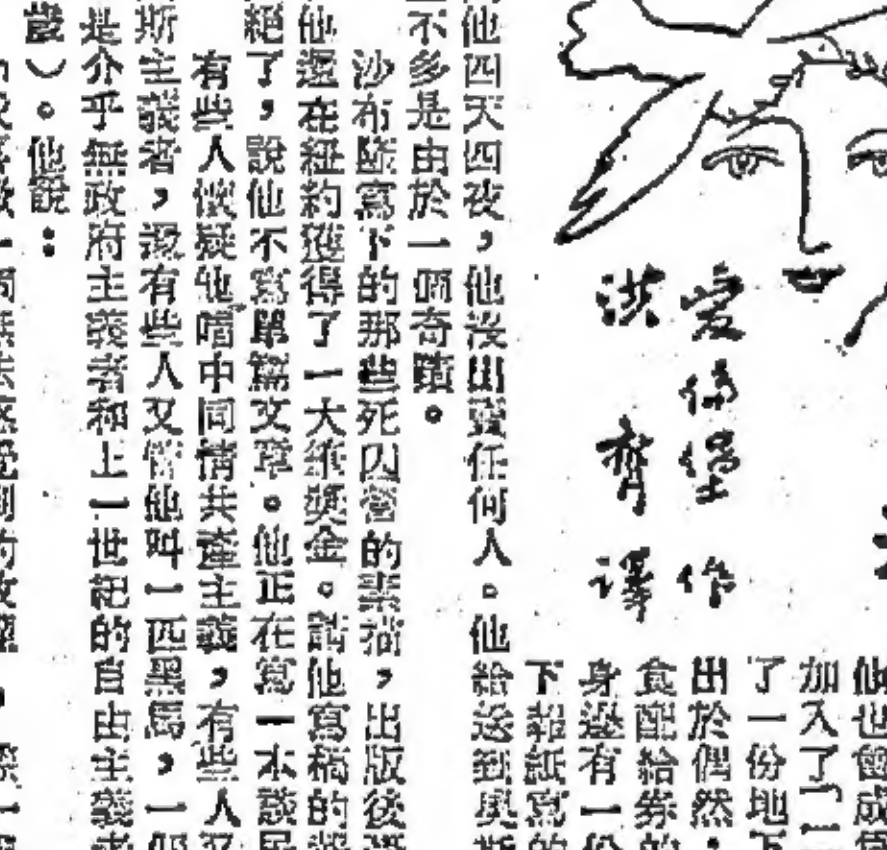 愛倫堡 作
洪齊 譯
他也曾成
加入了「一
了一份地下
出於偶然：
食配給券的
身邊有一份
下報紙寫的
他四天四夜，他沒出賣任何人。他給送到奧斯
不多是由於一個奇蹟。
沙布斷寫下的那些死囚營的素描，出版後
他還在紐約獲得了一大筆獎金。請他寫稿的
絕了，說他不寫單篇文章。他正在寫一本談
有些人懷疑他暗中同情共產主義，有些人又
斯主義者，還有些人又管他叫一匹黑馬，一個
是介乎無政府主義者和上一世紀的自由主義者
歲）。他說：